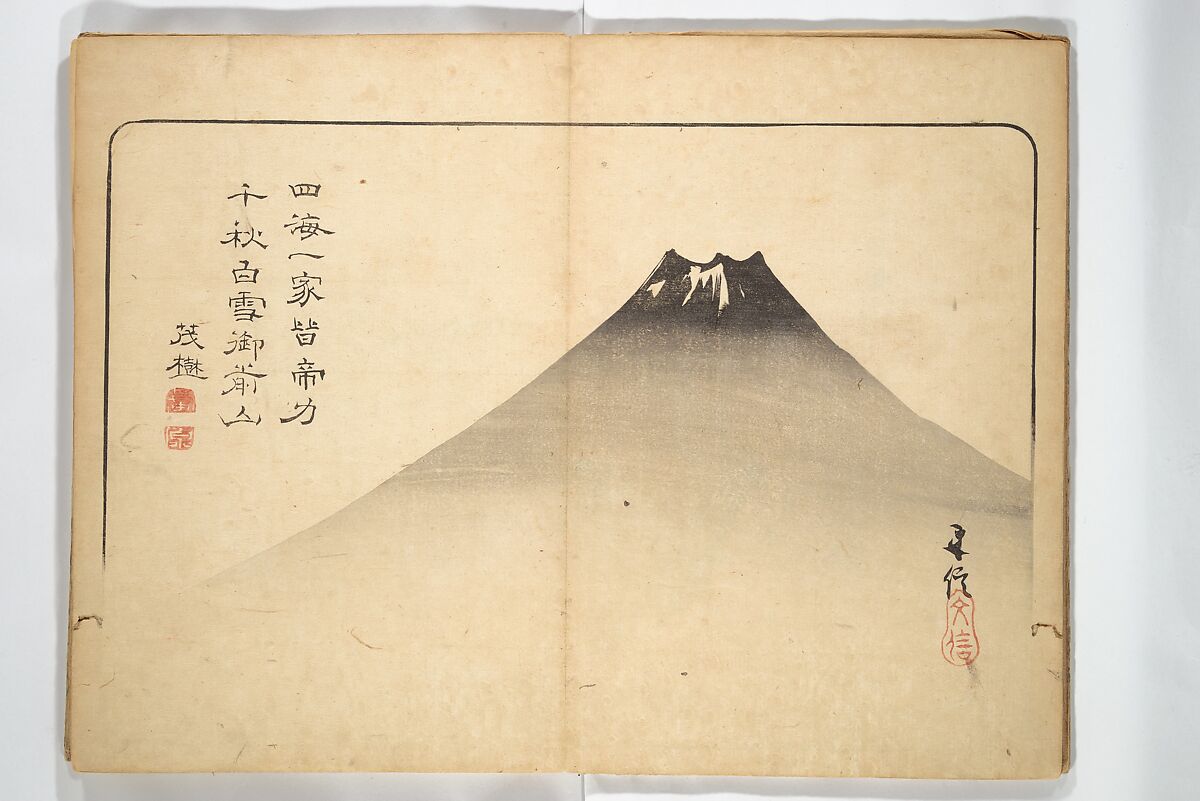 四海一家皆帝力
千秋白雪御前山
茂樹
文信